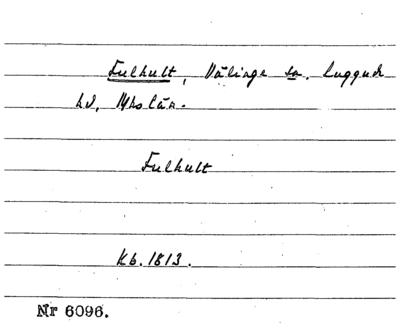 Fulhult, Välinge sn. Luggude
hd, Mhs län.
Fulhult
Kb. 1813.
Nr 6096.